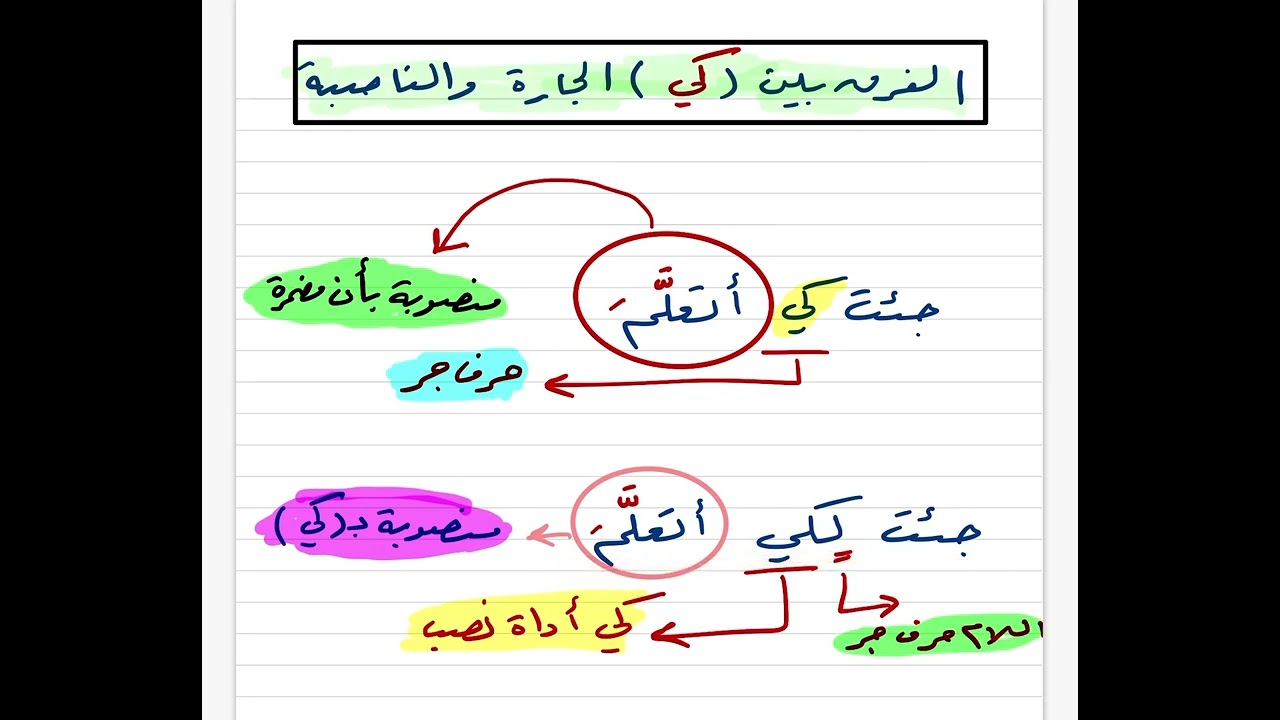 الفرق بين (كي) الجارة والناصبة
جئت كي أتعلَّمَ
منصوبة بأن مضمرة
حرف جر
جئت لكي أتعلَّمَ
منصوبة بـ(كي)
كي أداة نصب
اللام حرف جر